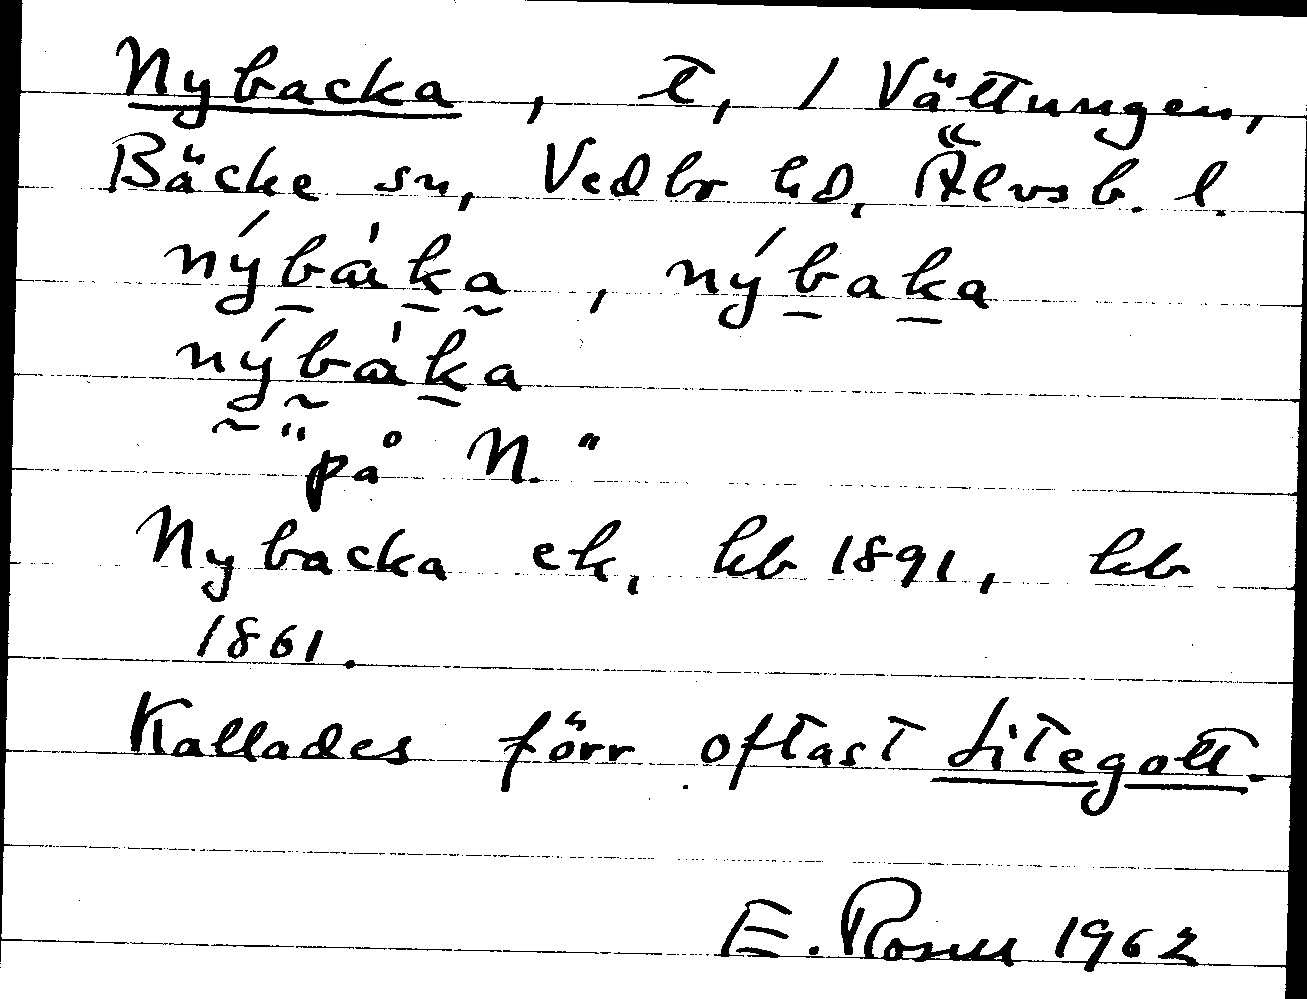 Nybacka, t, / Vättungen,
Bäcke sn, Vedbo hd, Älvsb. l.
nýbàka, nýbaka
nýbàka
"på N."
Nybacka ek, kb 1891, kb
1861.
Kallades förr oftast Litegott.
E. Rosell 1962